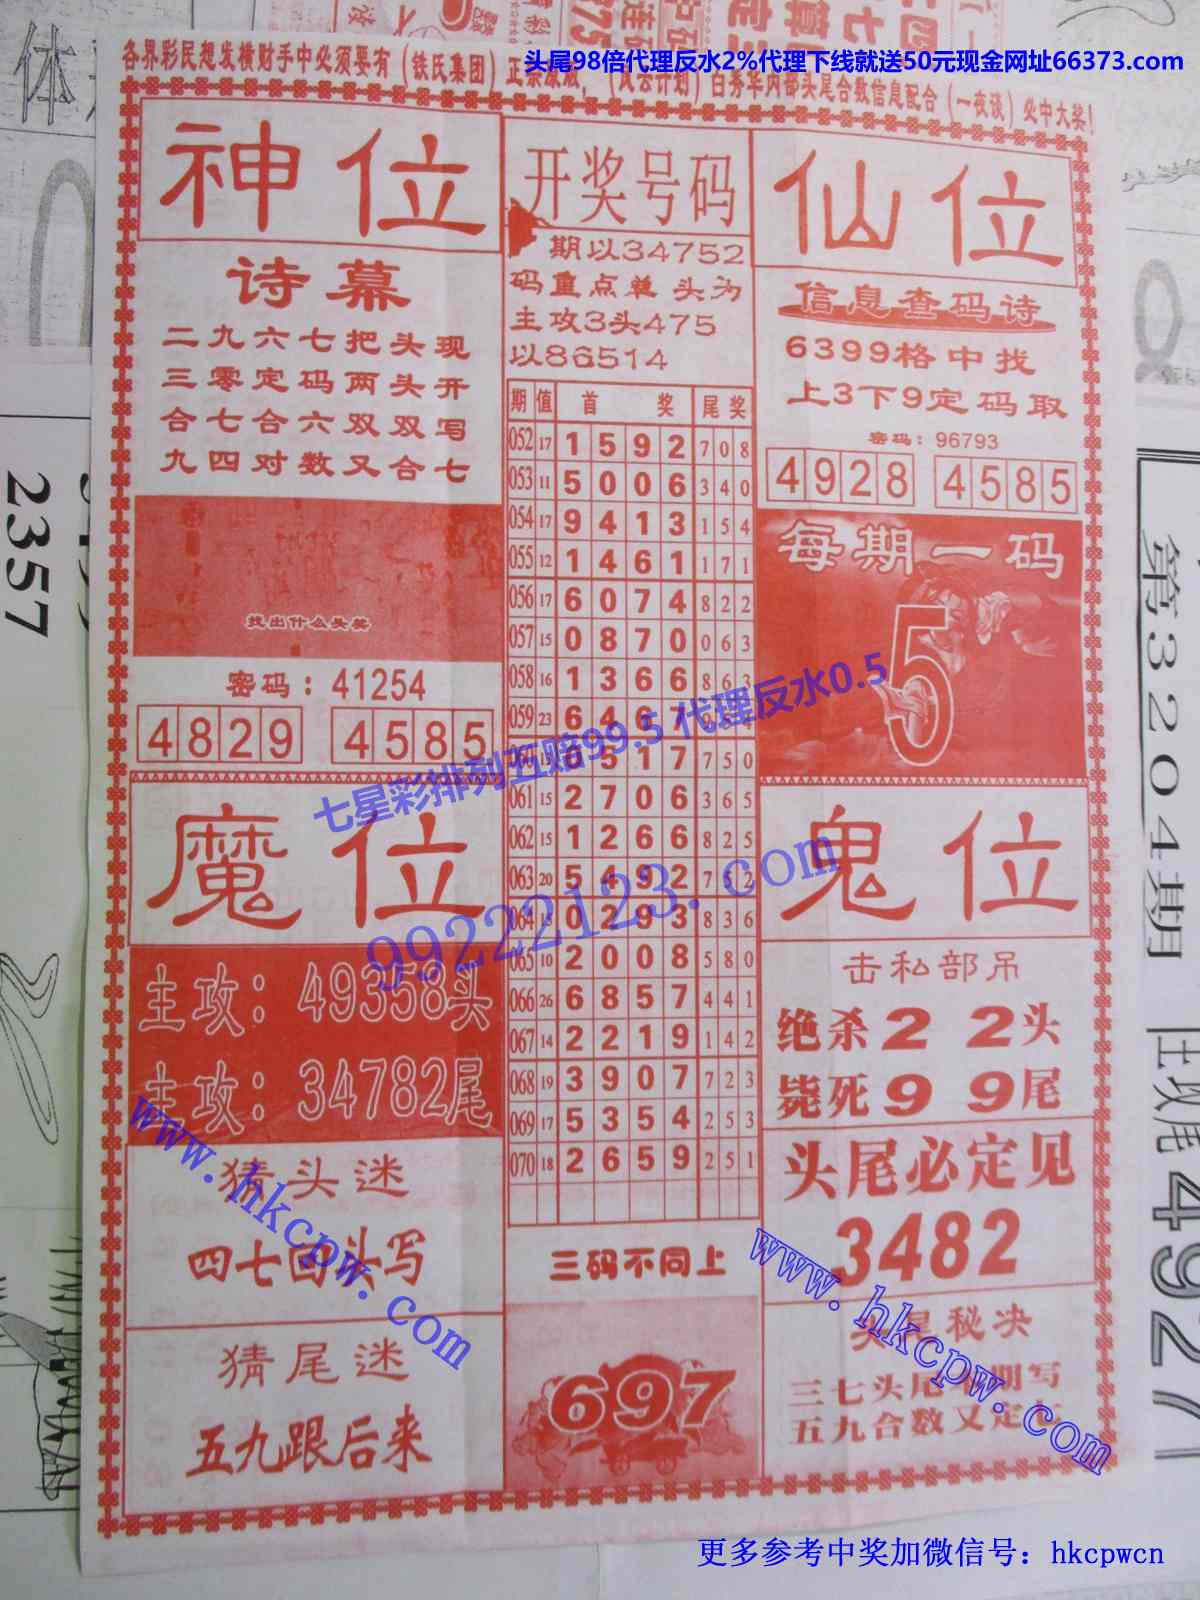 头尾98倍代理反水2%代理下线就送50元现金网址66373.com
各界彩民想发横财手中必须要有（铁氏集团）正
白秀华内部头尾合数信息配合（一夜谈）必中大奖！
神位
诗幕
二九六七把头现
三零定码两头开
合七合六双双写
九四对数又合七
找出什么头奖
密码：41254
4829 4585
魔位
主攻：49358头
主攻：34782尾
猜头迷
四七回头写
猜尾迷
五九跟后来
开奖号码
期以34752
码重点单头为
主攻3头475
以86514
期 值 首奖 尾奖
052 17 1 5 9 2 7 0 8
053 11 5 0 0 6 3 4 0
054 17 9 4 1 3 1 5 4
055 12 1 4 6 1 1 7 1
056 17 6 0 7 4 8 2 2
057 15 0 8 7 0 0 6 3
058 16 1 3 6 6 8 6 3
059 23 6 4 6 7
6 5 1 7 7 5 0
061 15 2 7 0 6 3 6 5
062 15 1 2 6 6 8 2 5
063 20 5 4 9 2 7 5 2
064 0 2 9 3 8 3 6
065 10 2 0 0 8 5 8 0
066 26 6 8 5 7 4 4 1
067 14 2 2 1 9 1 4 2
068 19 3 9 0 7 7 2 3
069 17 5 3 5 4 2 5 3
070 18 2 6 5 9 2 5 1
三码不同上
697
仙位
信息查码诗
6399格中找
上3下9定码取
密码：96793
4928 4585
每期一码
5
鬼位
击私部吊
绝杀2 2头
毙死9 9尾
头尾必定见
3482
秘决
三七头尾 期写
五九合数又定
七星彩排列五赔99.5 代理反水0.5
99222123.com
www.hkcpw.com
www.hkcpw.com
2357
第3204期
主攻尾49271
更多参考中奖加微信号：hkcpwcn